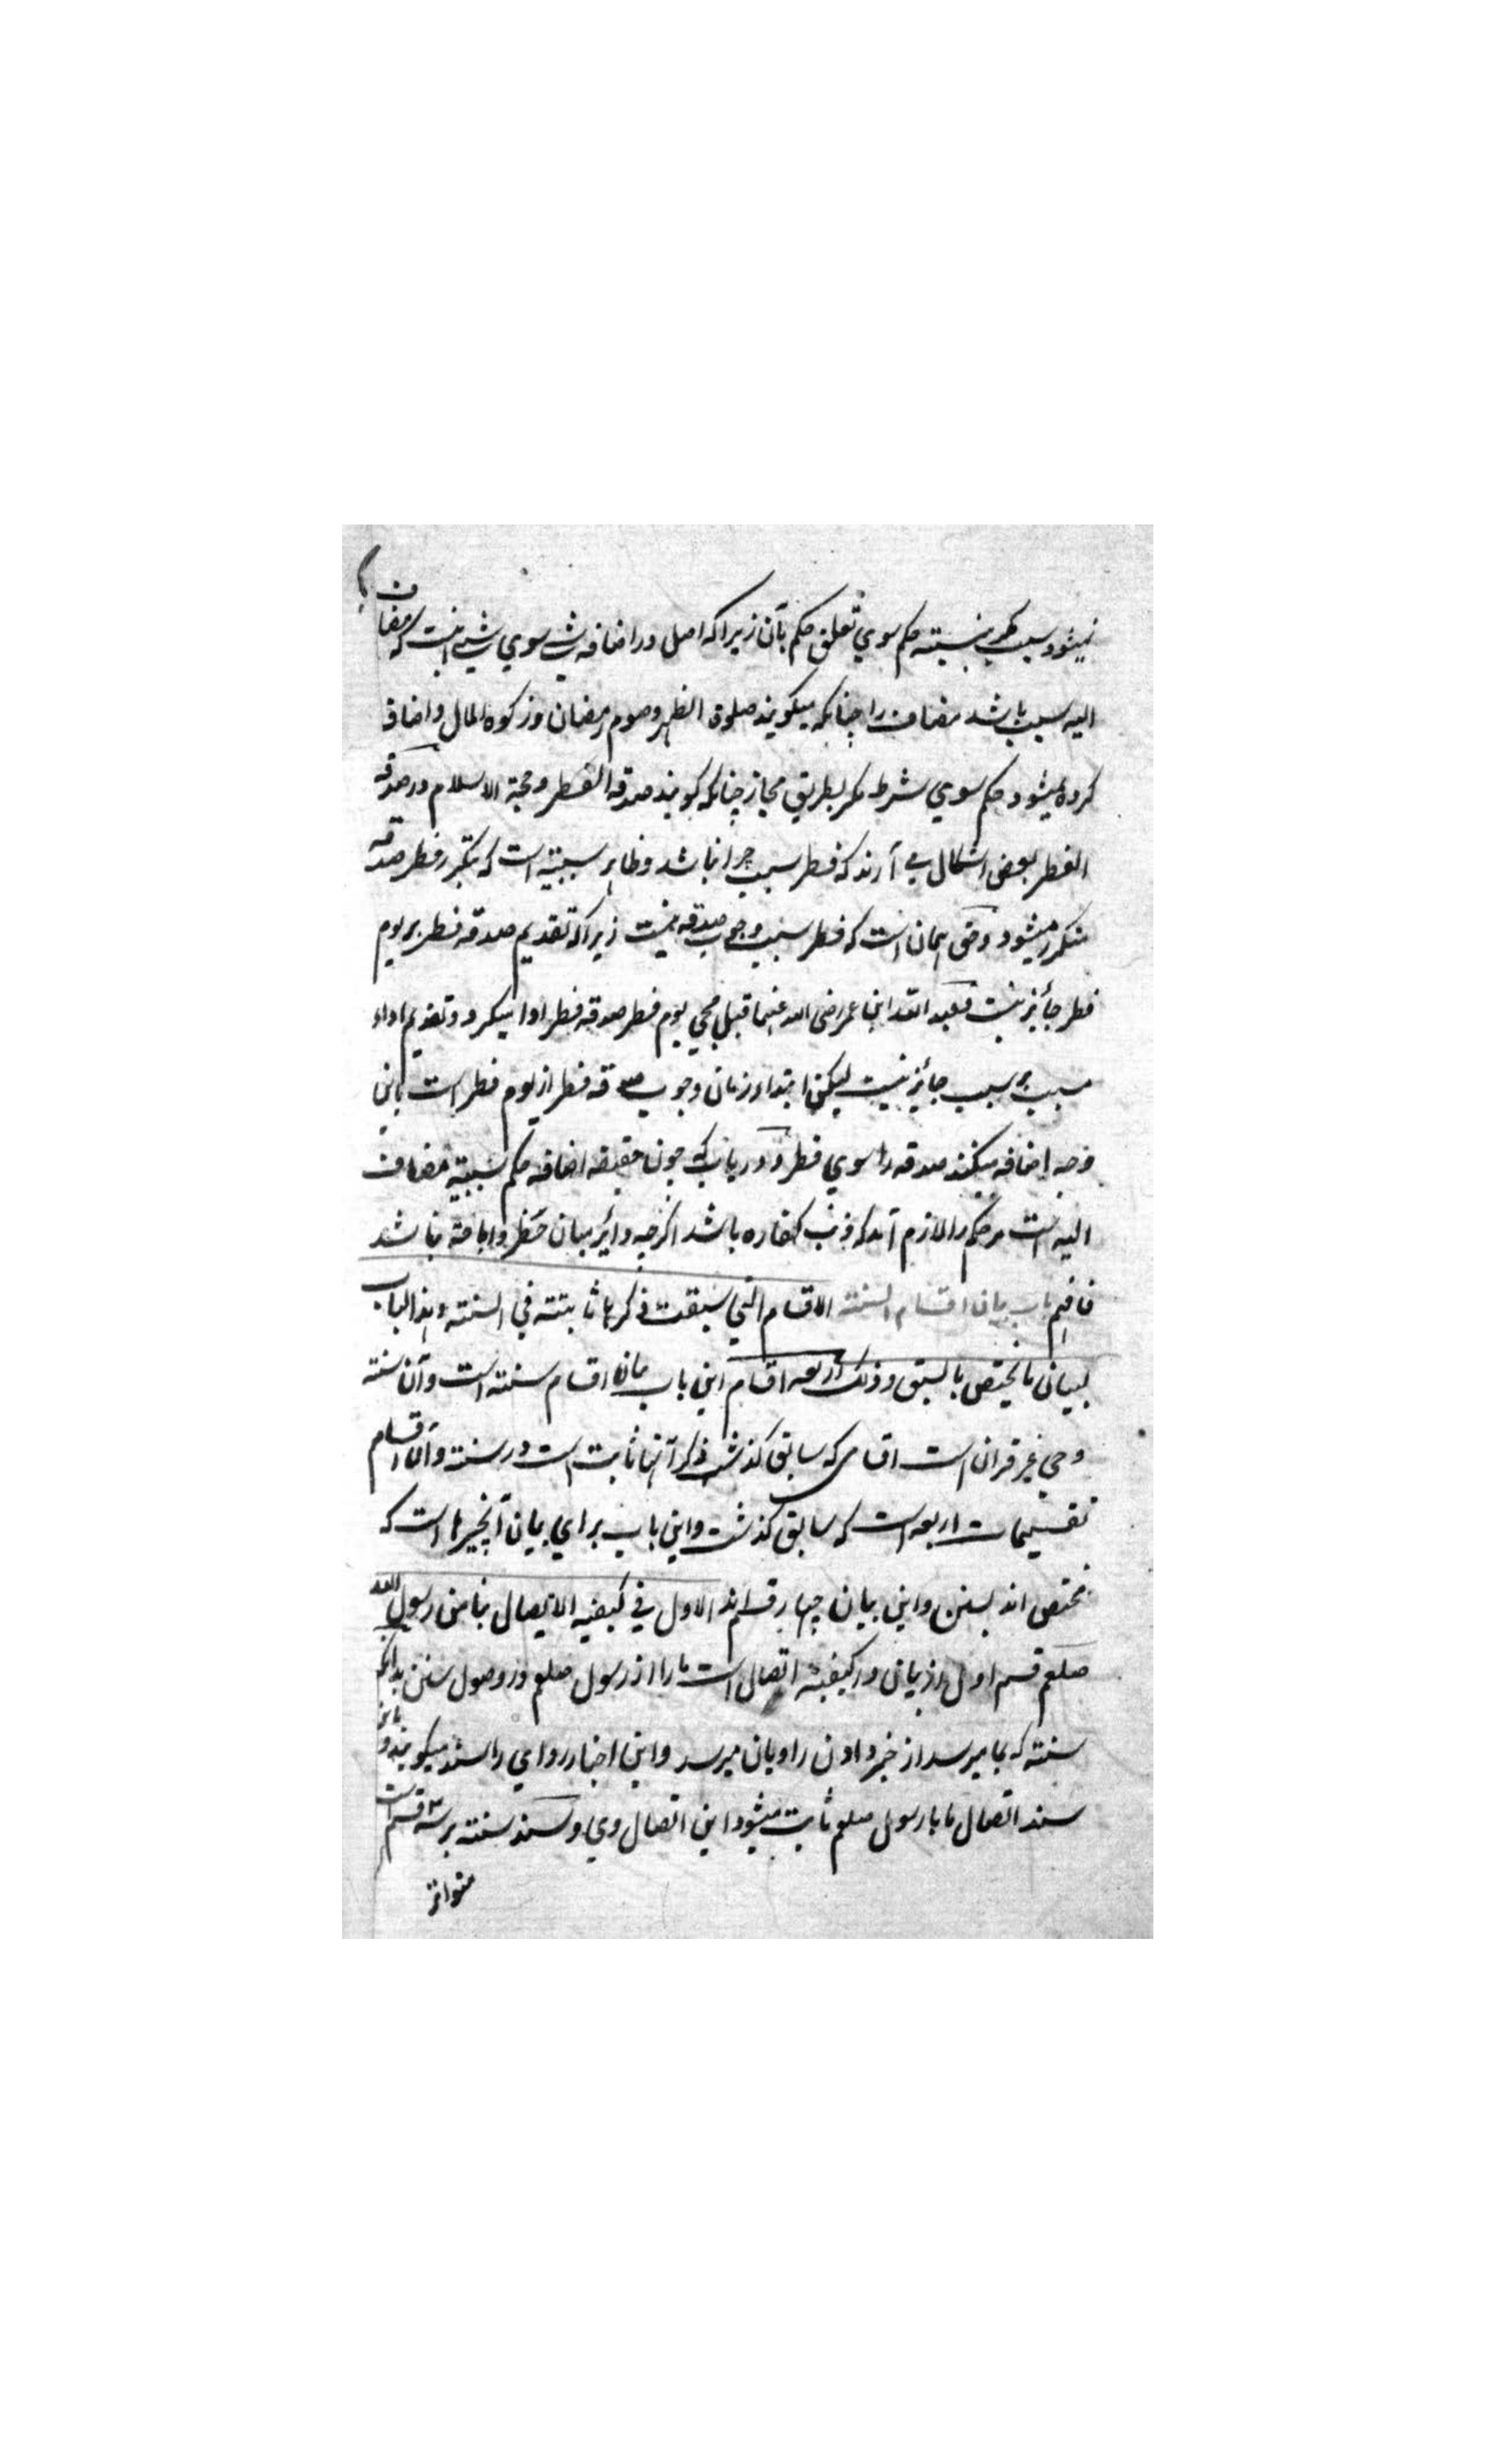 میشود سبب حکم نسبته حکم سوي تعلق حکم بآن زیرا که اصل در اضافه شی سوي شی اینست که مضاف
الیه سبب باشد مضاف را چنانکه میکویند صلوة الظهر وصوم رمضان وزکوة المال واضافه
کرده میشود حکم سوي شرط مکر بطریق مجاز چنانکه کویند صدقه الفطر وحجة الاسلام ودر صدقه
الفطر بعض اشکال می آرند که فطر سبب چرا نباشد وظاهر سببیته است که بتکرر فطر صدقه
متکرر میشود وحق همان است که فطر سبب وجوب صدقه نیست زیرا که تقدیم صدقه فطر بر یوم
فطر جائز نیست فعبد الله ابن عمر رضی الله عنهما قبل مجی یوم فطر صدقه فطر ادا میکرد وتقدیم اداء
مسبب بر سبب جائز نیست لیکن ابتداء زمان وجوب صدقه فطر از یوم فطر است باین
وجه اضافه میکنند صدقه را سوي فطر ودریاب که چون حقیقه اضافه حکم سببیة مضاف
الیه است مر حکم را لازم آمد که ذنب کفاره باشد اکرچه دائر میان حظر واباحة نباشد
فافهم باب بیان اقسام السنته الاقسام التي سبقت ذکرها ثابتته في السنته وهذا الباب
لبیان ما یختص بالسنن وذلک اربعه اقسام این باب بیان اقسام سنته است وآن سنته
وحي غیر قران است اقسامی که سابق کذشت ذکر آنها ثابت است در سنته وآن اقسام
تقسیمات اربعه است که سابق کذشت واین باب براي بیان آنچیزها است که
مختص اند بسنن واین بیان چهار قسم اند الاول في کیفیه الاتصال بنا من رسول الله
صلعم قسم اول از بیان در کیفیته اتصال است مارا از رسول صلعم در وصول سنن بدانکه
سنته که بما میرسد از خبر دادن راویان میرسد واین اخبار رواي را سند میکویند وباین
سند اتصال ما با رسول صلعم ثابت میشود این اتصال وي وسند سنته بر سه قسم است
متواتر